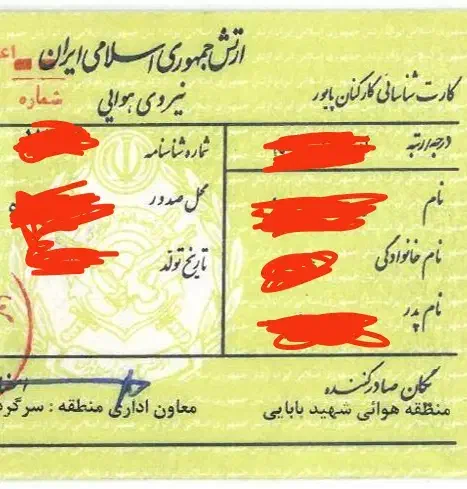 ارتش جمهوری اسلامی ایران
نیروی هوایی
شماره
کارت شناسائی کارکنان پایور
درجه/رتبه
نام
نام خانوادگی
نام پدر
شماره شناسنامه
محل صدور
تاریخ تولد
یگان صادرکننده
منطقه هوائی شهید بابایی
معاون اداری منطقه : سرگرد